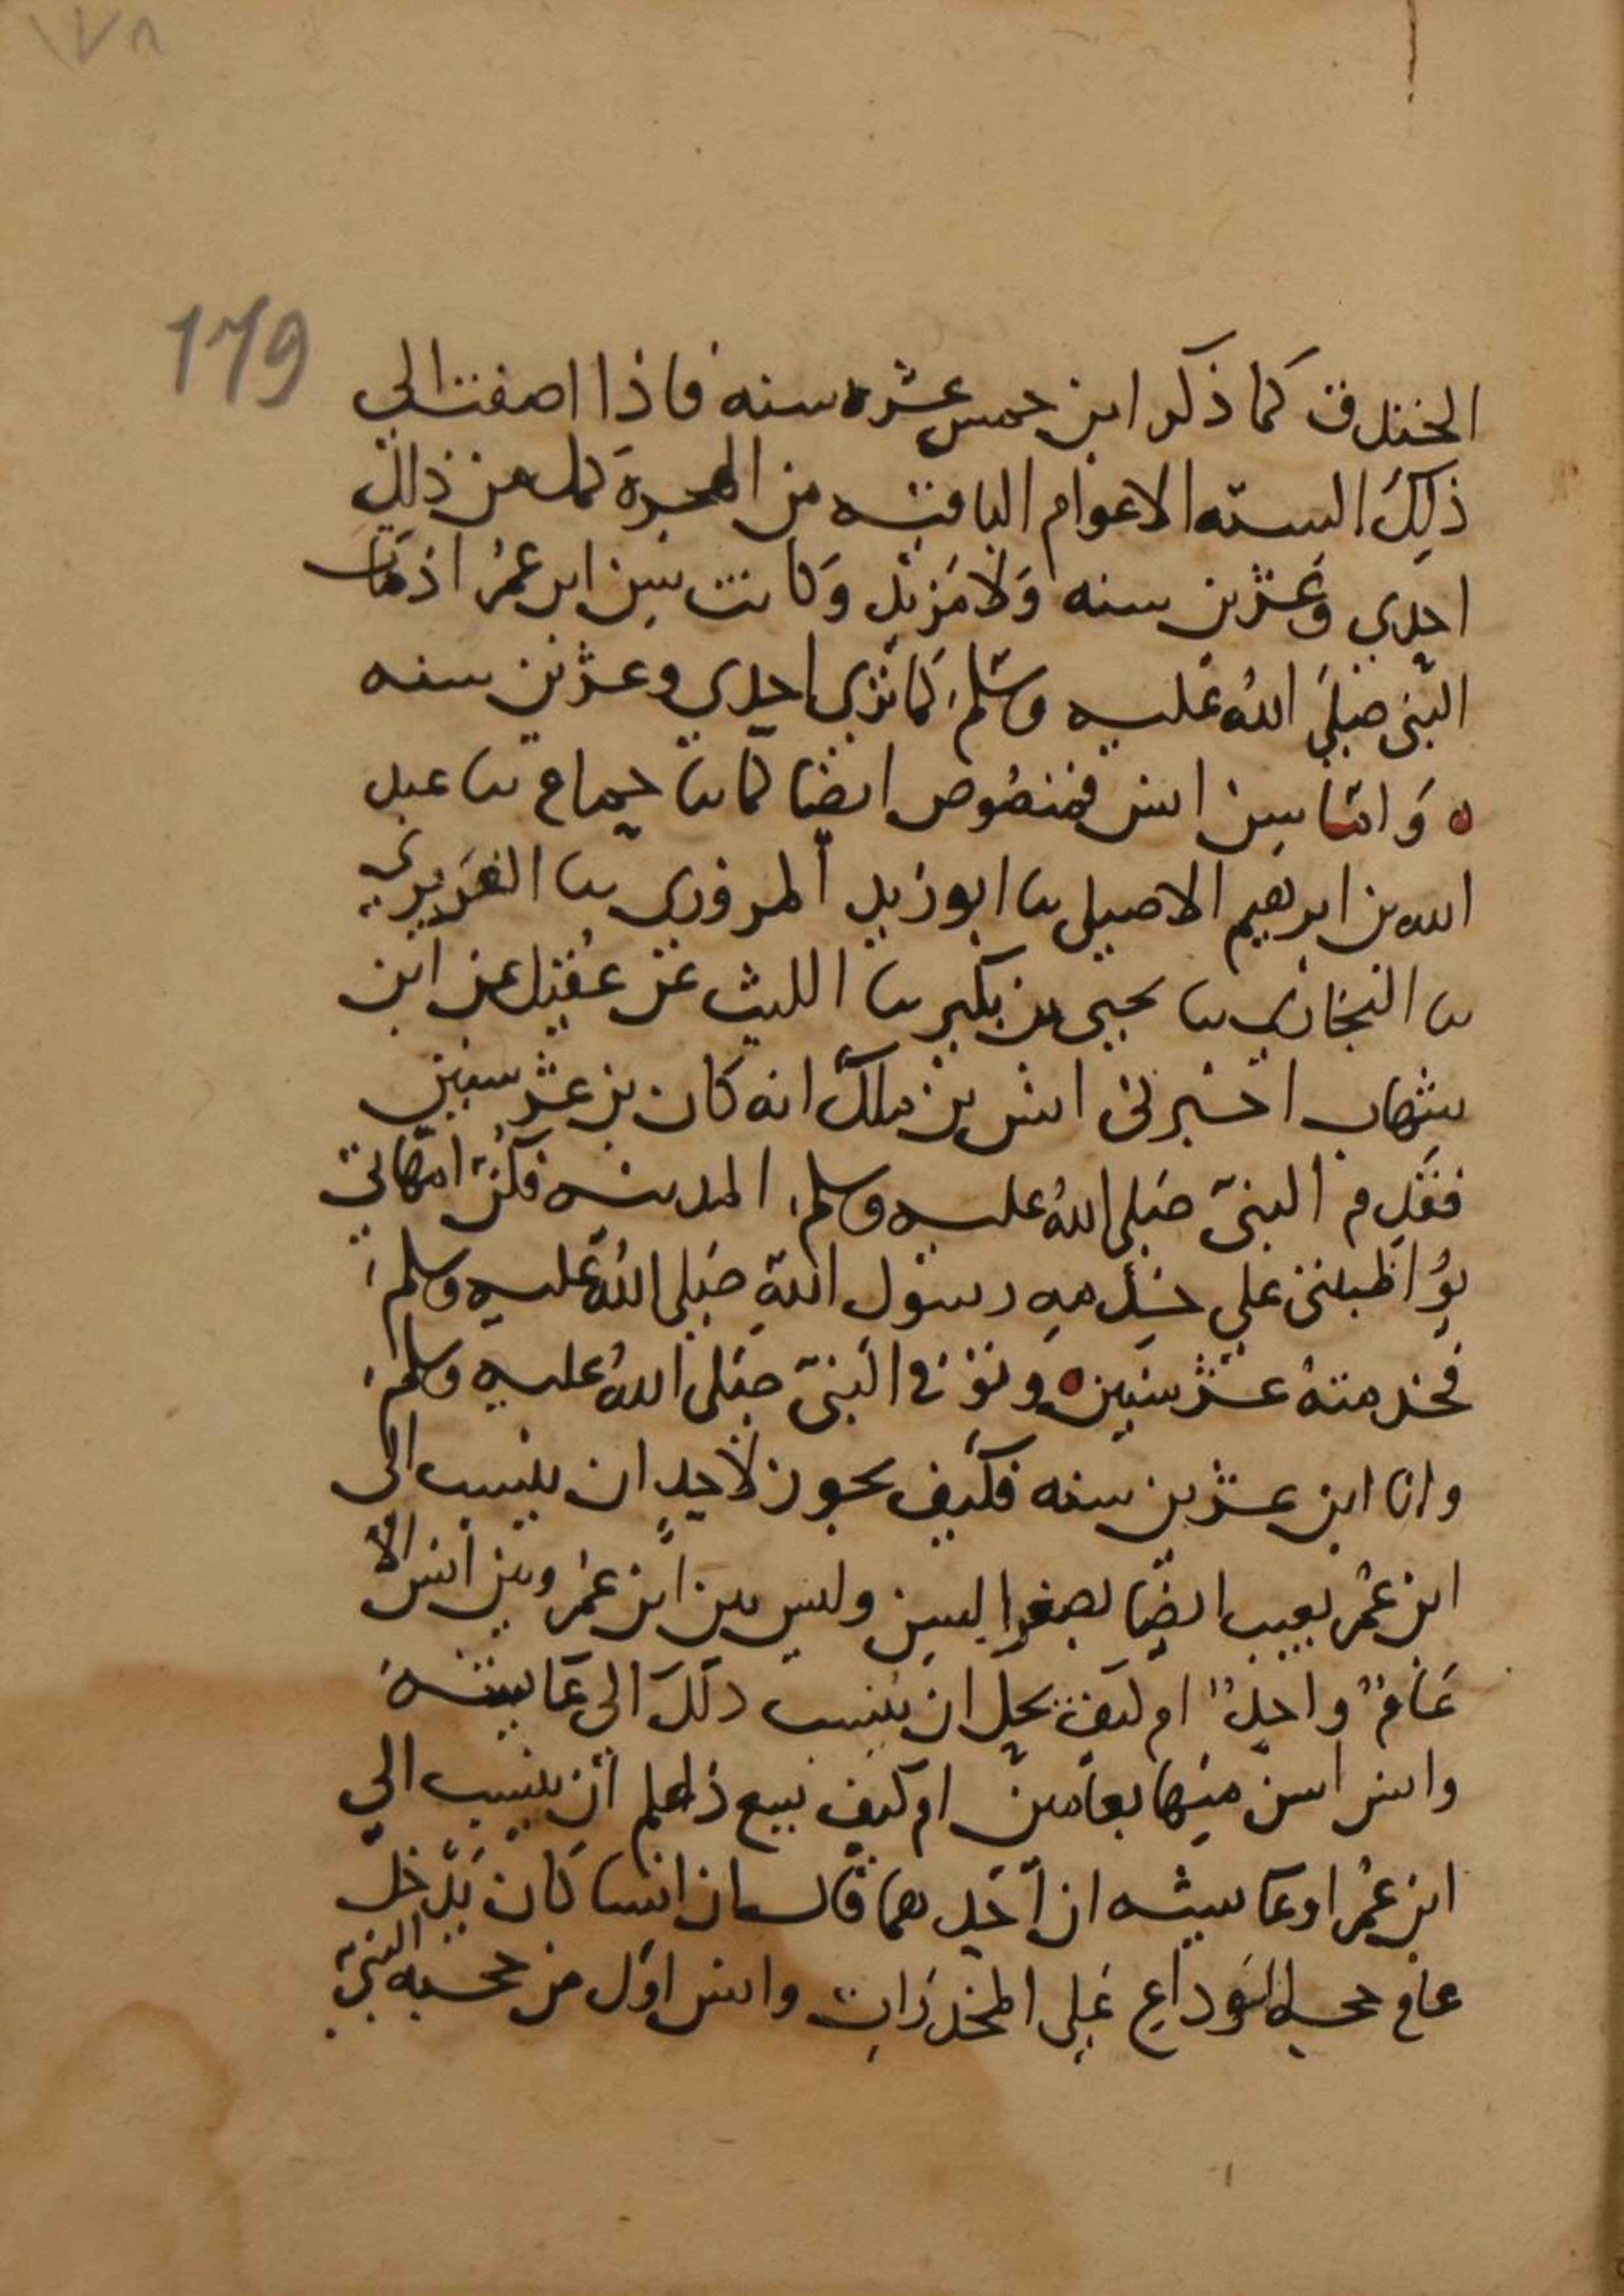 ١٧٨
179
الخندق كما ذكر ابن خمس عشره سنه فاذا اضفت الى
ذلك السته الاعوام الباقيه من الهجرة كمل من ذلك
احدي وعشرين سنه ولا مزيد وكانت سن ابن عمر اذ مات
النبي صلى الله عليه وسلم كما ترى احدي وعشرين سنه
ه واما سن انس فمنصوص ايضا كما نا حمام نا عبد
الله بن ابرهيم الاصيلي نا ابو زيد المروزي نا الفربري
نا البخاري نا يحيى بن بكير نا الليث عن عقيل عن ابن
شهاب اخبرني انس بن ملك انه كان بن عشر سنين
فقدم النبي صلى الله عليه وسلم المدينه فكن امهاتي
يواظبنني علي خدمه رسول الله صلى الله عليه وسلم
فخدمته عشر سنين ه وتوفي النبي صلى الله عليه وسلم
وانا ابن عشرين سنه فكيف يجوز لاحد ان ينسب الى
ابن عمر يعيب ايضا بصغر السن وليس بين ابن عمر وبين انس الا
عام واحد ام كيف يحل ان ينسب ذلك الى عايشه
وانس اسن منها بعامين ام كيف يسع ذا علم ان ينسب الي
ابن عمر او عايشه ان احدهما قال ان انسا كان يدخل
عام حجه الوداع على المخدرات وانس اول من حجبه النبي